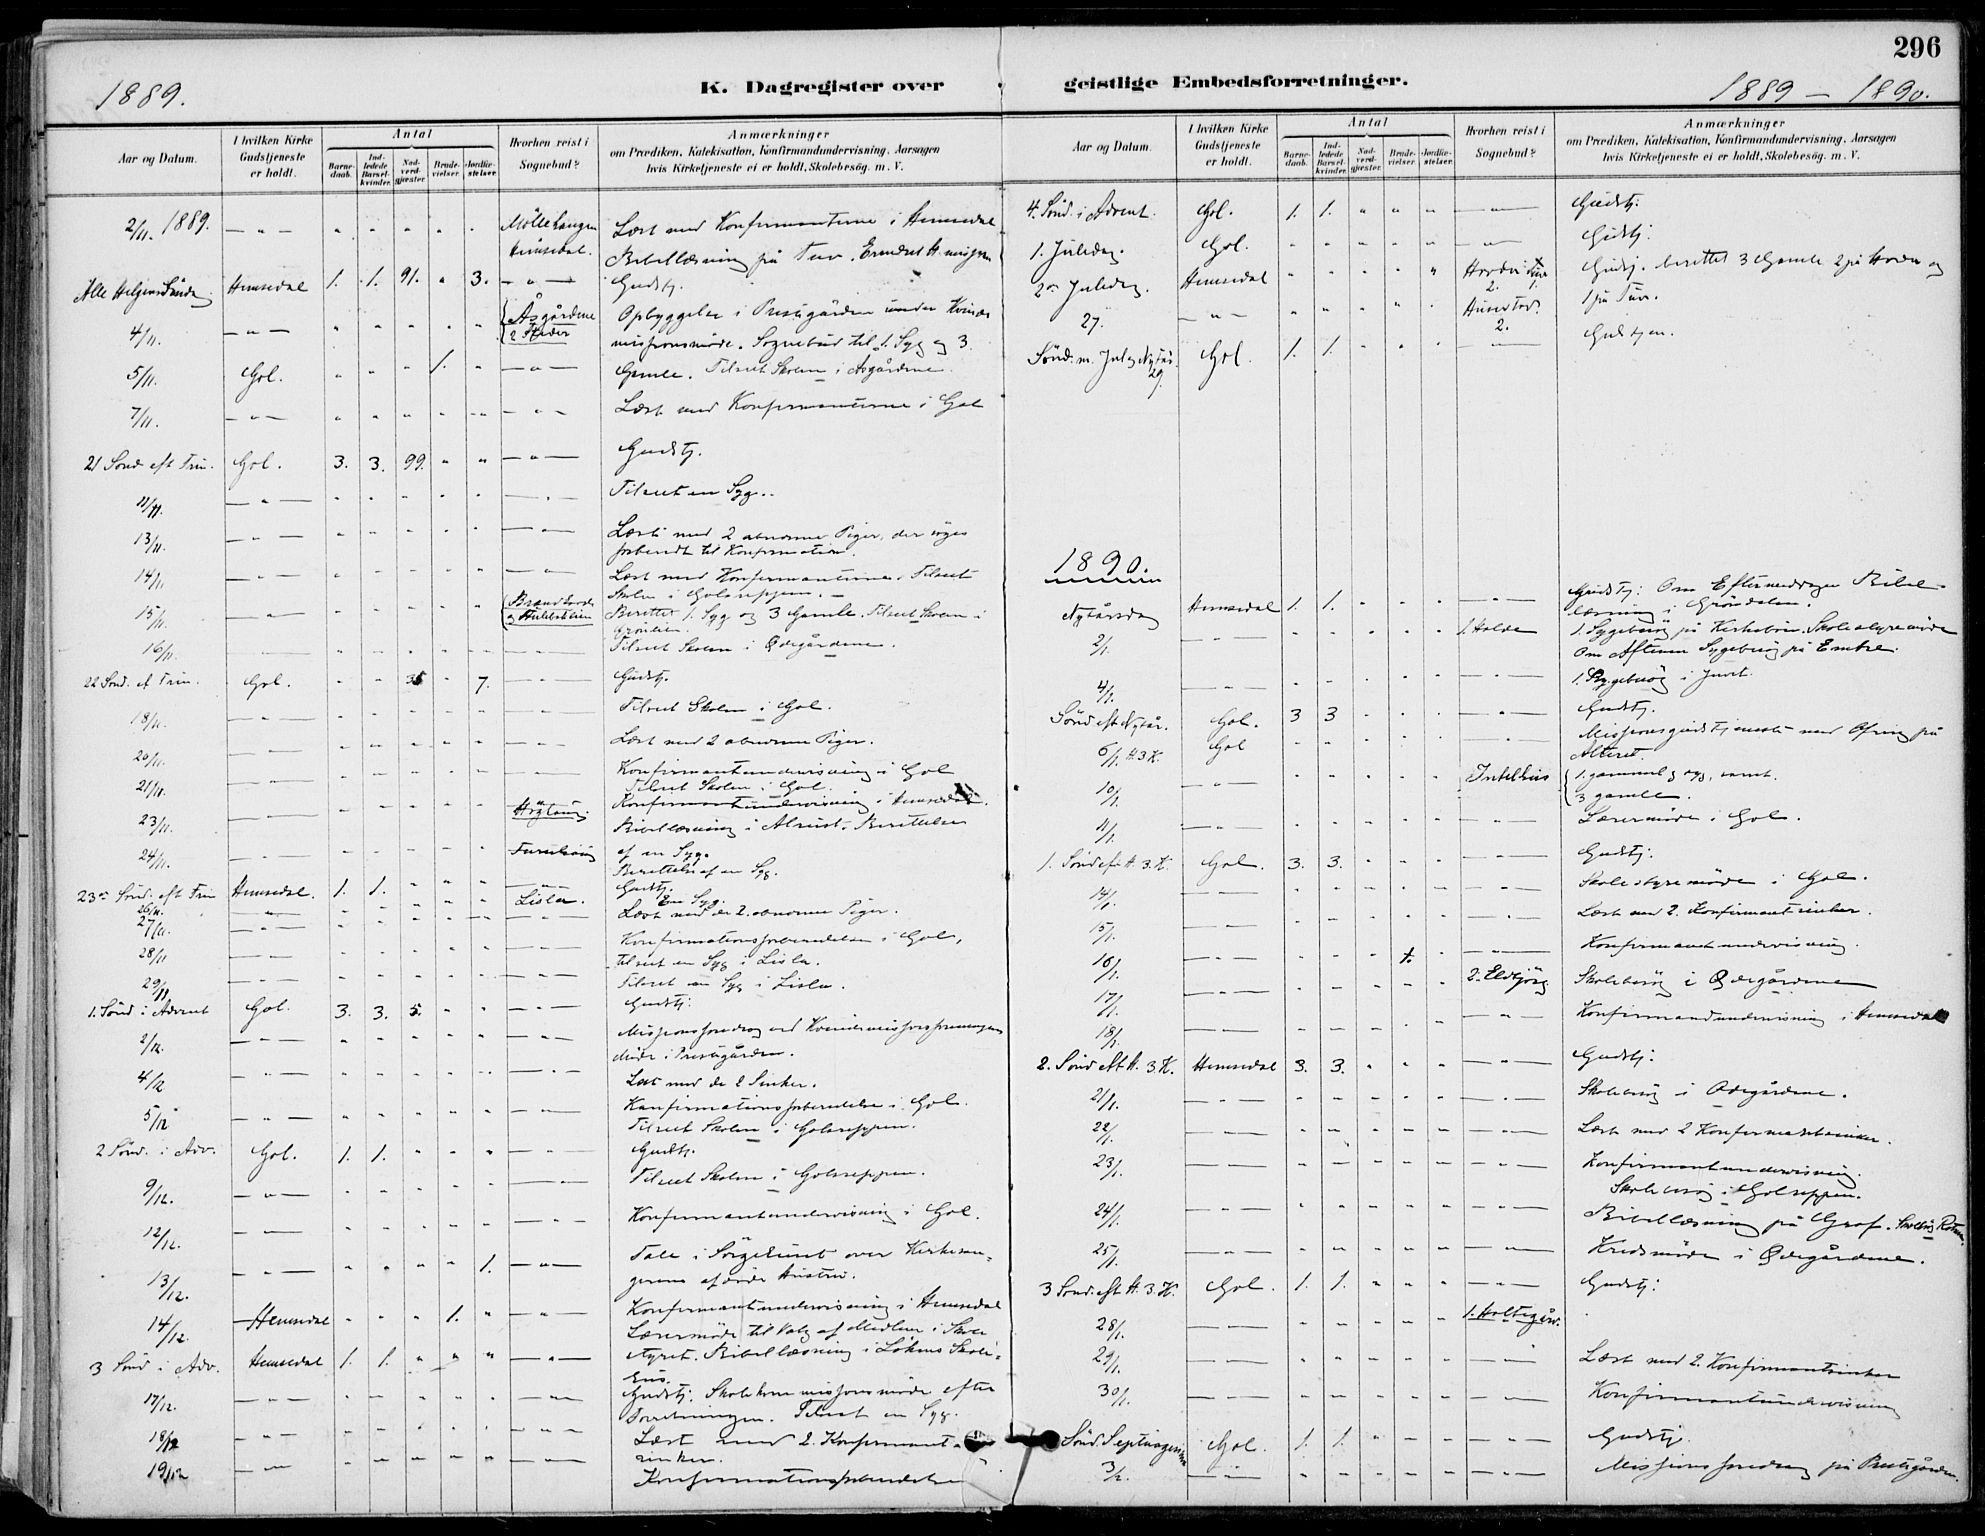 296
1889.
K. Dagregister over geistlige Embedsforretninger.
1889 – 1890.
Aar og Datum.
I hvilken Kirke Gudstjeneste er holdt.
Antal
Barnedaab.
Indledede Barselkvinder.
Nadverdgjæster.
Brudevielser.
Jordfæstelser.
Hvorhen reist i Sognebud?
Anmærkninger
om Prædiken, Katekisation, Konfirmandundervisning, Aarsagen
hvis Kirketjeneste ei er holdt, Skolebesøg. m. V.
2/11. 1889. — " — " " " " " Læst med Konfirmanterne i Hemsedal
Hemsedal. Bibellæsning på Tuv.
Alle Helgens Søndag Hemsedal 1. 1. 91. " 3. — " — Gudstj.
4/11. — " — " " " " " Åsgårdene Opbyggelse i Prestegården under Kvinde
2 Steder missionsmøde. Sognebud til 1. Syg og 3
5/11. Gol. " " " 1. " — " — Gamle. Tilseet Skolen i Åsgårdene.
7/11. — " — " " " " " — " — Læst med Konfirmanterne i Gol
21 Sønd. eft Trin. Gol. 3. 3. 99. " " — " — Gudstj.
11/11. — " — " " " " " — " — Tilseet en Syg.
13/11. — " — " " " " " — " — Læst med 2 abnorme Piger, der søges
forberedt til Konfirmation.
14/11. — " — " " " " " — " — Læst med Konfirmanterne. Tilseet
Skolen i Golsreppen. —
15/11. — " — " " " " " Berettet 1. Syg og 3 Gamle. Tilseet Skolen i
Grønlien.
16/11. — " — " " " " " — " — Tilseet Skolen i Ødegårdene.
22 Sønd. ef Trin. Gol. " " 35 " 7. — " — Gudstj.
18/11. — " — " " " " " — " — Tilseet Skolen i Gol.
20/11. — " — " " " " " — " — Læst med 2 abnorme Piger.
21/11. — " — " " " " " — " — Konfirmantundervisning i Gol
Tilseet Skolen i Gol.
23/11. — " — " " " " " Konfirmantundervisning i Hemsedal.
Bibellæsning i Ålrust. Berettelse
24/11. — " — " " " " " af en Syg.
Berettelse af en Syg.
23de Sønd. eft Trin Hemsedal. 1. 1. " " " — " — Gudstj.
26/11. — " — " " " " " Lislea. En Syg.
27/11. — " — " " " " " — " — Læst med de 2. abnorme Piger.
28/11 — " — " " " " " — " — Konfirmationsforberedelse i Gol,
tilseet en Syg i Lislea.
29/11 — " — " " " " " — " — Tilseet en Syg i Lislea.
1. Sønd i Advent Gol. 3. 3. 5. " " — " — Gudstj.
2/12. — " — " " " " " — " — Missionsforedrag ved Kvindemissionsforeningens
Møde i Prestegården.
4/12 — " — " " " " " — " — Læst med de 2 Sinker.
5/12 — " — " " " " " — " — Konfirmationsforberedelse i Gol.
Tilseet Skolen i Golsreppen.
2 Sønd. i Adv. Gol. 1. 1. " " " — " — Gudstj.
9/12. — " — " " " " " — " — Tilseet Skolen i Golsreppen.
12/12. — " — " " " " " — " — Konfirmantundervisning i Gol.
13/12. — " — " " " " 1. — " — Tale i Sørgehuset over Kirkesan-
gerens afdøde Hustru.
14/12 Hemsedal " " " 1. " — " — Konfirmantundervisning i Hemsedal
Lærermøde til Valg af Medlem i Skole
3 Sønd i Adv. Hemsedal 1. 1. " " " — " — styret. Bibellæsning i Løkens Skole-
hus.
17/12. — " — " " " " " — " — Gudstj. Skolekommissionsmøde efter
Forretningen. Tilseet en Syg.
18/12 — " — " " " " " — " — Læst med 2. Konfirmant-
sinker.
19/12 — " — " " " " " — " — Konfirmationsforberedelse
Aar og Datum.
I hvilken Kirke Gudstjeneste er holdt.
Antal
Barnedaab.
Indledede Barselkvinder.
Nadverdgjæster.
Brudevielser.
Jordfæstelser.
Hvorhen reist i Sognebud?
Anmærkninger
om Prædiken, Katekisation, Konfirmandundervisning, Aarsagen
hvis Kirketjeneste ei er holdt, Skolebesøg. m. V.
4. Sønd. i Advent. Gol. 1. 1. " " " — " — Gudstj.
1. Juledag. Gol. " " " " " — " — Gudstj.
2den Juledag. Hemsedal " " " " " Gudstj. berettet 3 Gamle 2 på og
27. — " — " " " " " 2. 1 på Tuv.
Sønd. m. Jul og Nytår. 29. Gol. 1. 1. " " " — " — Gudstjen.
1890.
Nytårsdag Hemsedal 1. 1. " " " — " — Gudstj: Om Eftermiddagen Bibel-
læsning i Grøndalen.
2/1. — " — " " " " " 1. Holde 1. Sygebesøg på Kirkebøen. Skolestyremøde
Om Aftenen Sygebesøg på Embre.
4/1. — " — " " " " " — " — 1. Sygebesøg i Juvet.
Sønd eft Nytår. Gol. 3 3 " " " — " — Gudstj.
6/1. H. 3 K. Gol " " " " " — " — Missionsgudstjeneste med Ofring på
Alteret.
10/1. — " — " " " " " 1. gammel og syg, samt.
3 gamle.
11/1. — " — " " " " " — " — Lærermøde i Gol.
1. Sønd eft H. 3. K. Gol. 3. 3. " " " — " — Gudstj:
14/1. — " — " " " " " — " — Skolestyremøde i Gol.
15/1. — " — " " " " " — " — Læst med 2. Konfirmantsinker.
16/1. — " — " " " 1. " — " — Konfirmantundervisning.
17/1. — " — " " " " " 2. Eldbjørg Skolebesøg i Ødegårdene
18/1. — " — " " " " " — " — Konfirmandundervisning i Hemsedal
2. Sønd eft H. 3. K. Hemsedal 3. 3. " " " — " — Gudstj:
21/1. — " — " " " " " — " — Skolebesøg i Ødegårdene.
22/1. — " — " " " " " — " — Læst med 2 Konfirmantsinker.
23/1. — " — " " " " " — " — Konfirmantundervisning.
Skolebesøg i Golsreppen.
24/1. — " — " " " " " — " — Bibellæsning på Grøf.
25/1. — " — " " " " " — " — Kredsmøde i Ødegårdene.
3 Sønd. eft H. 3. K. Gol. 1. 1. " " " — " — Gudstj:
28/1. — " — " " " " " 1. Holtegård.
29/1. — " — " " " " " — " — Læst med 2. Konfirmantsinker
30/1. — " — " " " " " — " — Konfirmantundervisning
Sønd. Septuagesima Gol. 1. 1. " " " — " — Gudstj.
3/2. — " — " " " " " — " — Missionsforedrag på Prestegården.